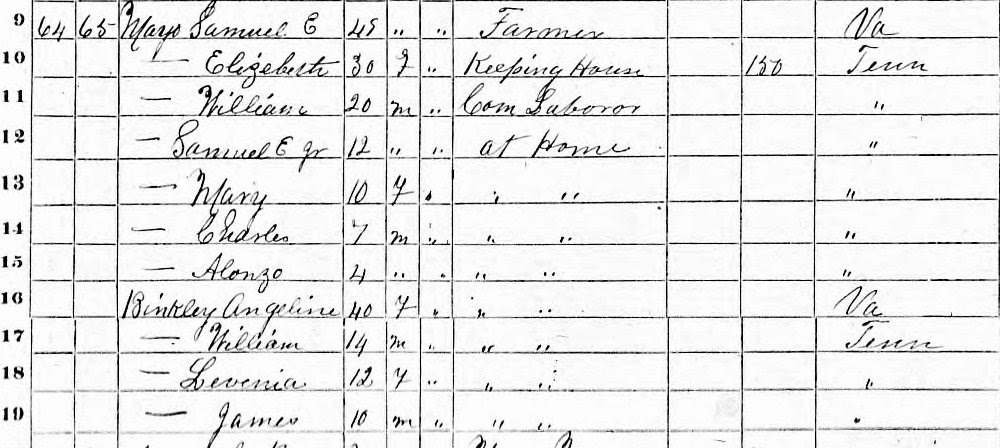 9 64 65 Mayo Samuel E 45 " " Farmer Va
10 — Elizebeth 30 F " Keeping House 150 Tenn
11 — William 20 m " Com Laboror "
12 — Samuel E Jr 12 " " at Home "
13 — Mary 10 F " " " "
14 — Charles 7 m " " " "
15 — Alonzo 4 " " " " "
16 Binkley Angeline 40 F " " " Va
17 — William 14 m " " " Tenn
18 — Levenia 12 F " " " "
19 — James 10 m " " " "